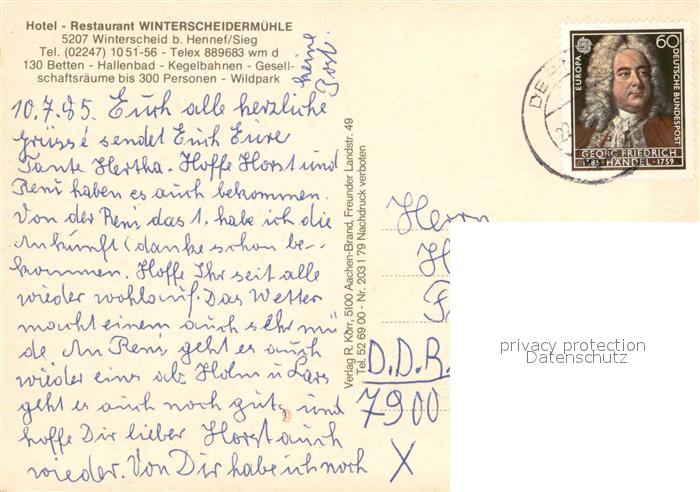 Hotel - Restaurant WINTERSCHEIDERMÜHLE
5207 Winterscheid b. Hennef/Sieg
Tel. (02247) 10 51-56 - Telex 889683 wm d
130 Betten - Hallenbad - Kegelbahnen - Gesell-
schaftsräume bis 300 Personen - Wildpark
keine
Post.
10.7.85. Euch alle herzliche
Grüsse sendet Euch Eure
Tante Hertha. Hoffe Horst und
René haben es auch bekommen.
Von der René das 1. habe ich die
Ankunft (danke schon be-
kommen. Hoffe Ihr seit alle
wieder wohlauf. Das Wetter
macht einem auch sehr mü
de An René geht es auch
wieder eins ab Holm u Lars
geht es auch noch gut, und
hoffe Dir lieber Horst auch
wieder. Von Dir habe ich noch
Verlag R. Körr, 5100 Aachen-Brand, Freunder Landstr. 49
Tel. 52 69 00 - Nr. 2031 79 Nachdruck verboten
EUROPA
60
DEUTSCHE BUNDESPOST
GEORG FRIEDRICH
1685 HÄNDEL 1759
Herrn
H
F
D.D.R.
7900
X
privacy protection
Datenschutz